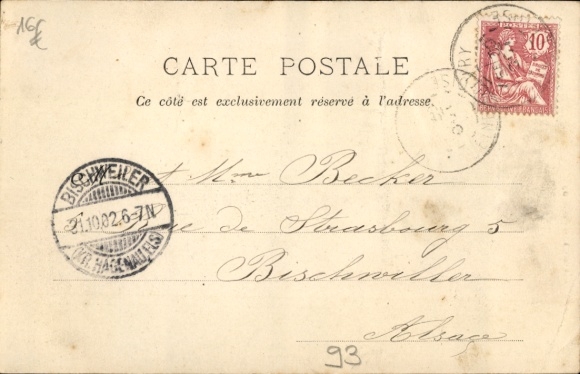 16€
10
POSTES
CARTE POSTALE
Ce côté est exclusivement réservé à l'adresse.
BISCHWEILER
31.10.02.6-7N
(KR. HAGENAU ELS)
Mme Becker
Rue de Strasbourg 5
Bischwiller
Alsace
93